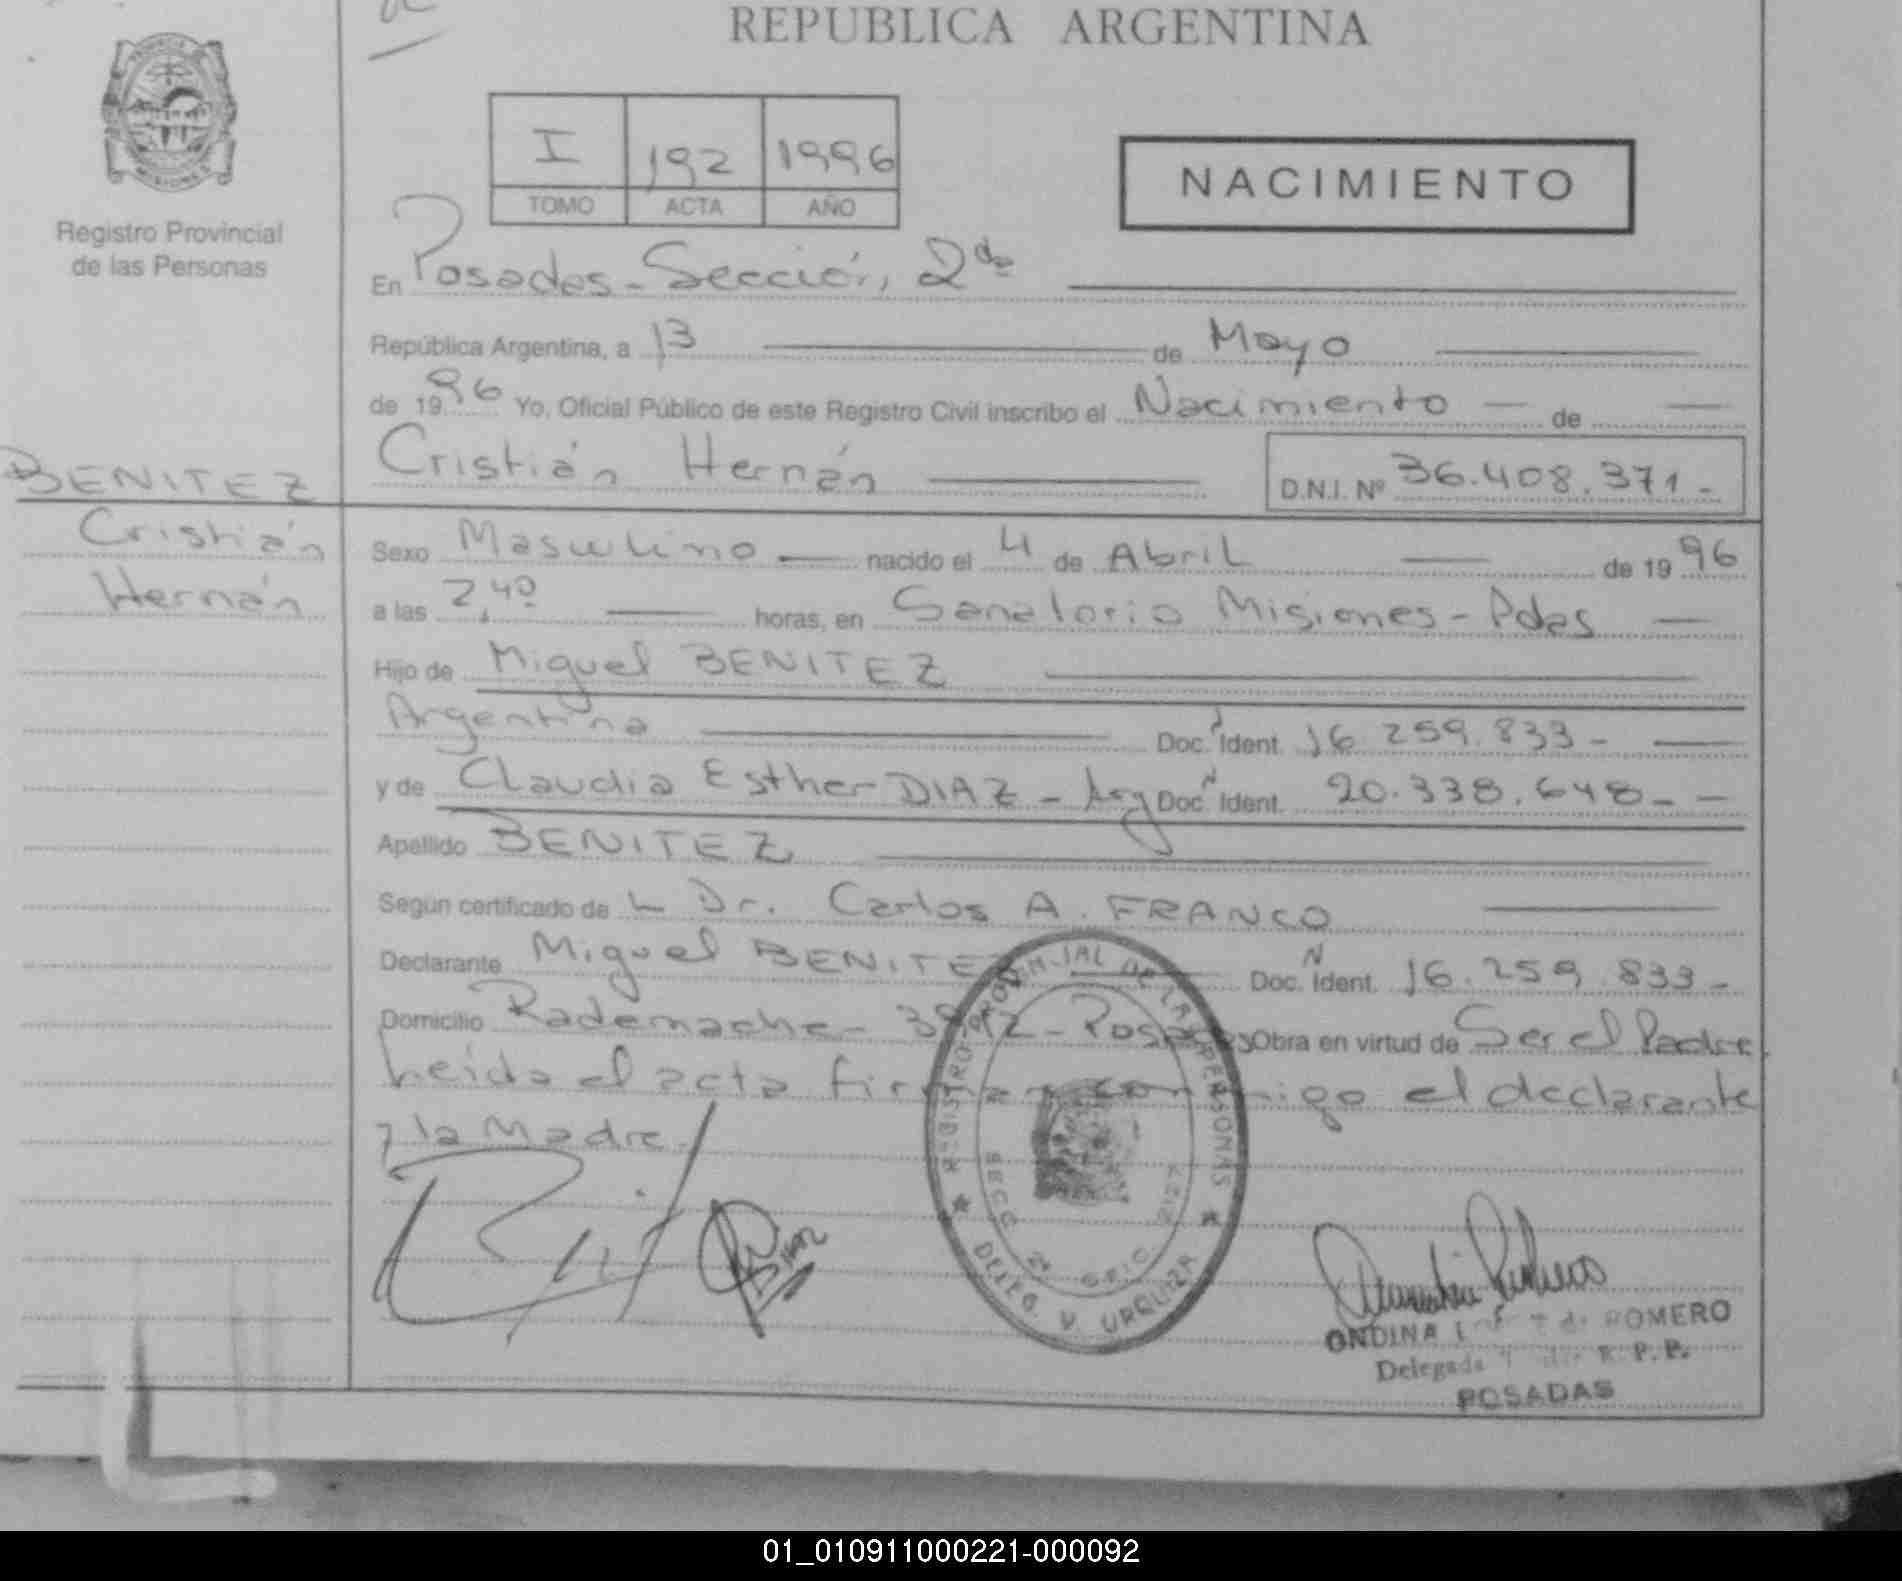 REPUBLICA ARGENTINA
MISIONES
Registro Provincial
de las Personas
I 192 1996
TOMO ACTA AÑO
NACIMIENTO
En Posadas - Sección, 2da
República Argentina, a 13 de Mayo
de 1996 Yo, Oficial Público de este Registro Civil inscribo el Nacimiento — de —
BENITEZ
Cristián
Hernán
Cristián Hernán D.N.I. Nº 36.408.371.-
Sexo Masculino — nacido el 4 de Abril — de 1996
a las 2,40 — horas, en Sanatorio Misiones - Pdas —
Hijo de Miguel BENITEZ
Argentina Doc. Ident. 16.259.833 -
y de Claudia Esther DIAZ - Arg Doc. Ident. 20.338.648 - -
Apellido BENITEZ
Según certificado de L Dr. Carlos A. FRANCO
Declarante Miguel BENITEZ Doc. Ident. 16.259.833 -
Domicilio Rademacher - Posadas Obra en virtud de Ser el Padre.
Leída el acta firman conmigo el declarante
y la Madre.
REGISTRO PROVINCIAL DE LAS PERSONAS
SECC 2ª
DELEG. V. URQUIZA
ONDINA de ROMERO
Delegada R. P. P.
POSADAS
01_010911000221-000092